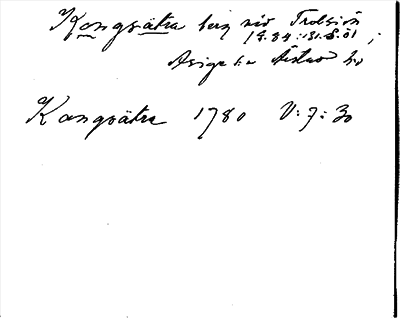 Kongsätra berg vid Trolsjön
19.84:131.8.01 ;
Asige sn Årstad hd
Kongsätra 1780 V:7:30